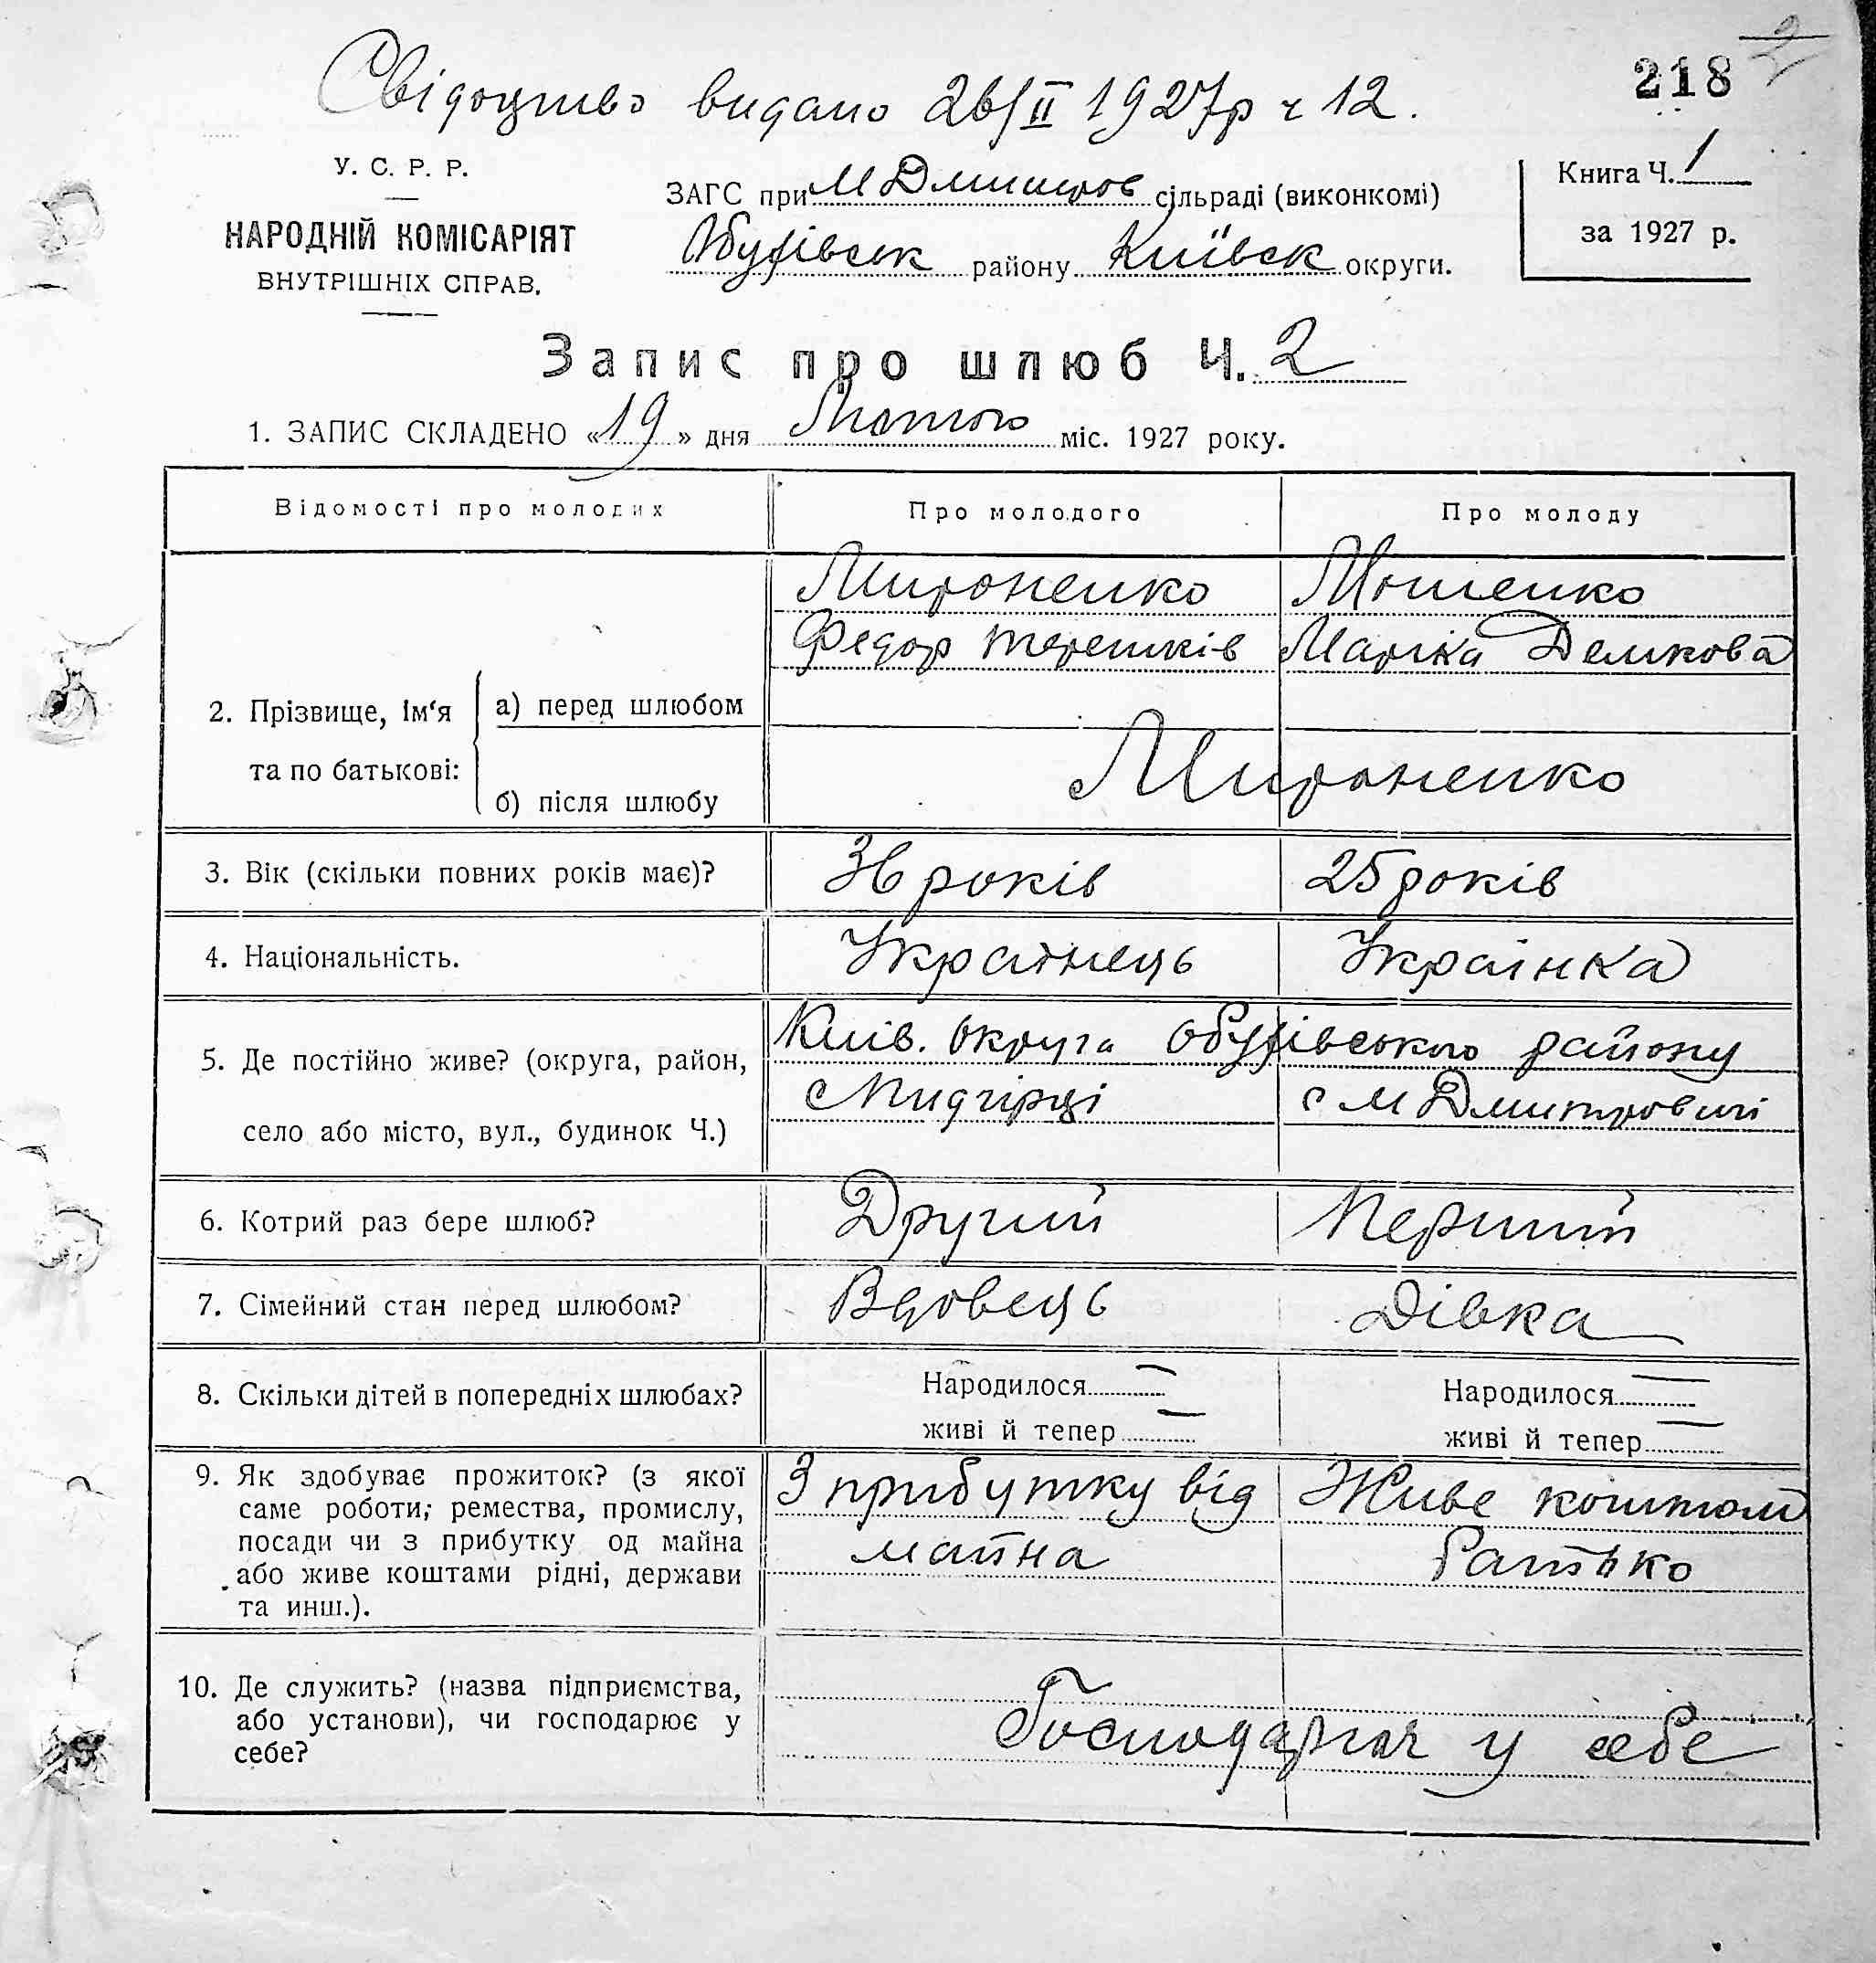 218
Свідоцтво видано 26/II 1927р ч 12.
У. С. Р. Р.
НАРОДНІЙ КОМІСАРІЯТ
ВНУТРІШНІХ СПРАВ.
ЗАГС при М Дмитров сільраді (виконкомі)
Обухівськ району Київськ округи.
Книга Ч. 1
за 1927 р.
Запис про шлюб Ч. 2
1. ЗАПИС СКЛАДЕНО «19» дня Лютого міс. 1927 року.
Відомості про молодих Про молодого Про молоду
2. Прізвище, ім‘я та по батькові:
а) перед шлюбом
Мироненко
Федор Терешків
Мошенко
Марійка Демкова
б) після шлюбу
Мироненко
3. Вік (скільки повних років має)? 36 років 25 років
4. Національність. Українець Українка
5. Де постійно живе? (округа, район,
село або місто, вул., будинок Ч.)
Київ. округа Обухівського району
с Підгірці с М Дмитровичі
6. Котрий раз бере шлюб? Другий Перший
7. Сімейний стан перед шлюбом? Вдовець Дівка
8. Скільки дітей в попередніх шлюбах?
Народилося — Народилося —
живі й тепер — живі й тепер —
9. Як здобуває прожиток? (з якої
саме роботи; ремества, промислу,
посади чи з прибутку од майна
або живе коштами рідні, держави
та инш.).
З прибутку від
майна
Живе коштом
батько
10. Де служить? (назва підприємства,
або установи), чи господарює у
себе?
Господарюч у себе